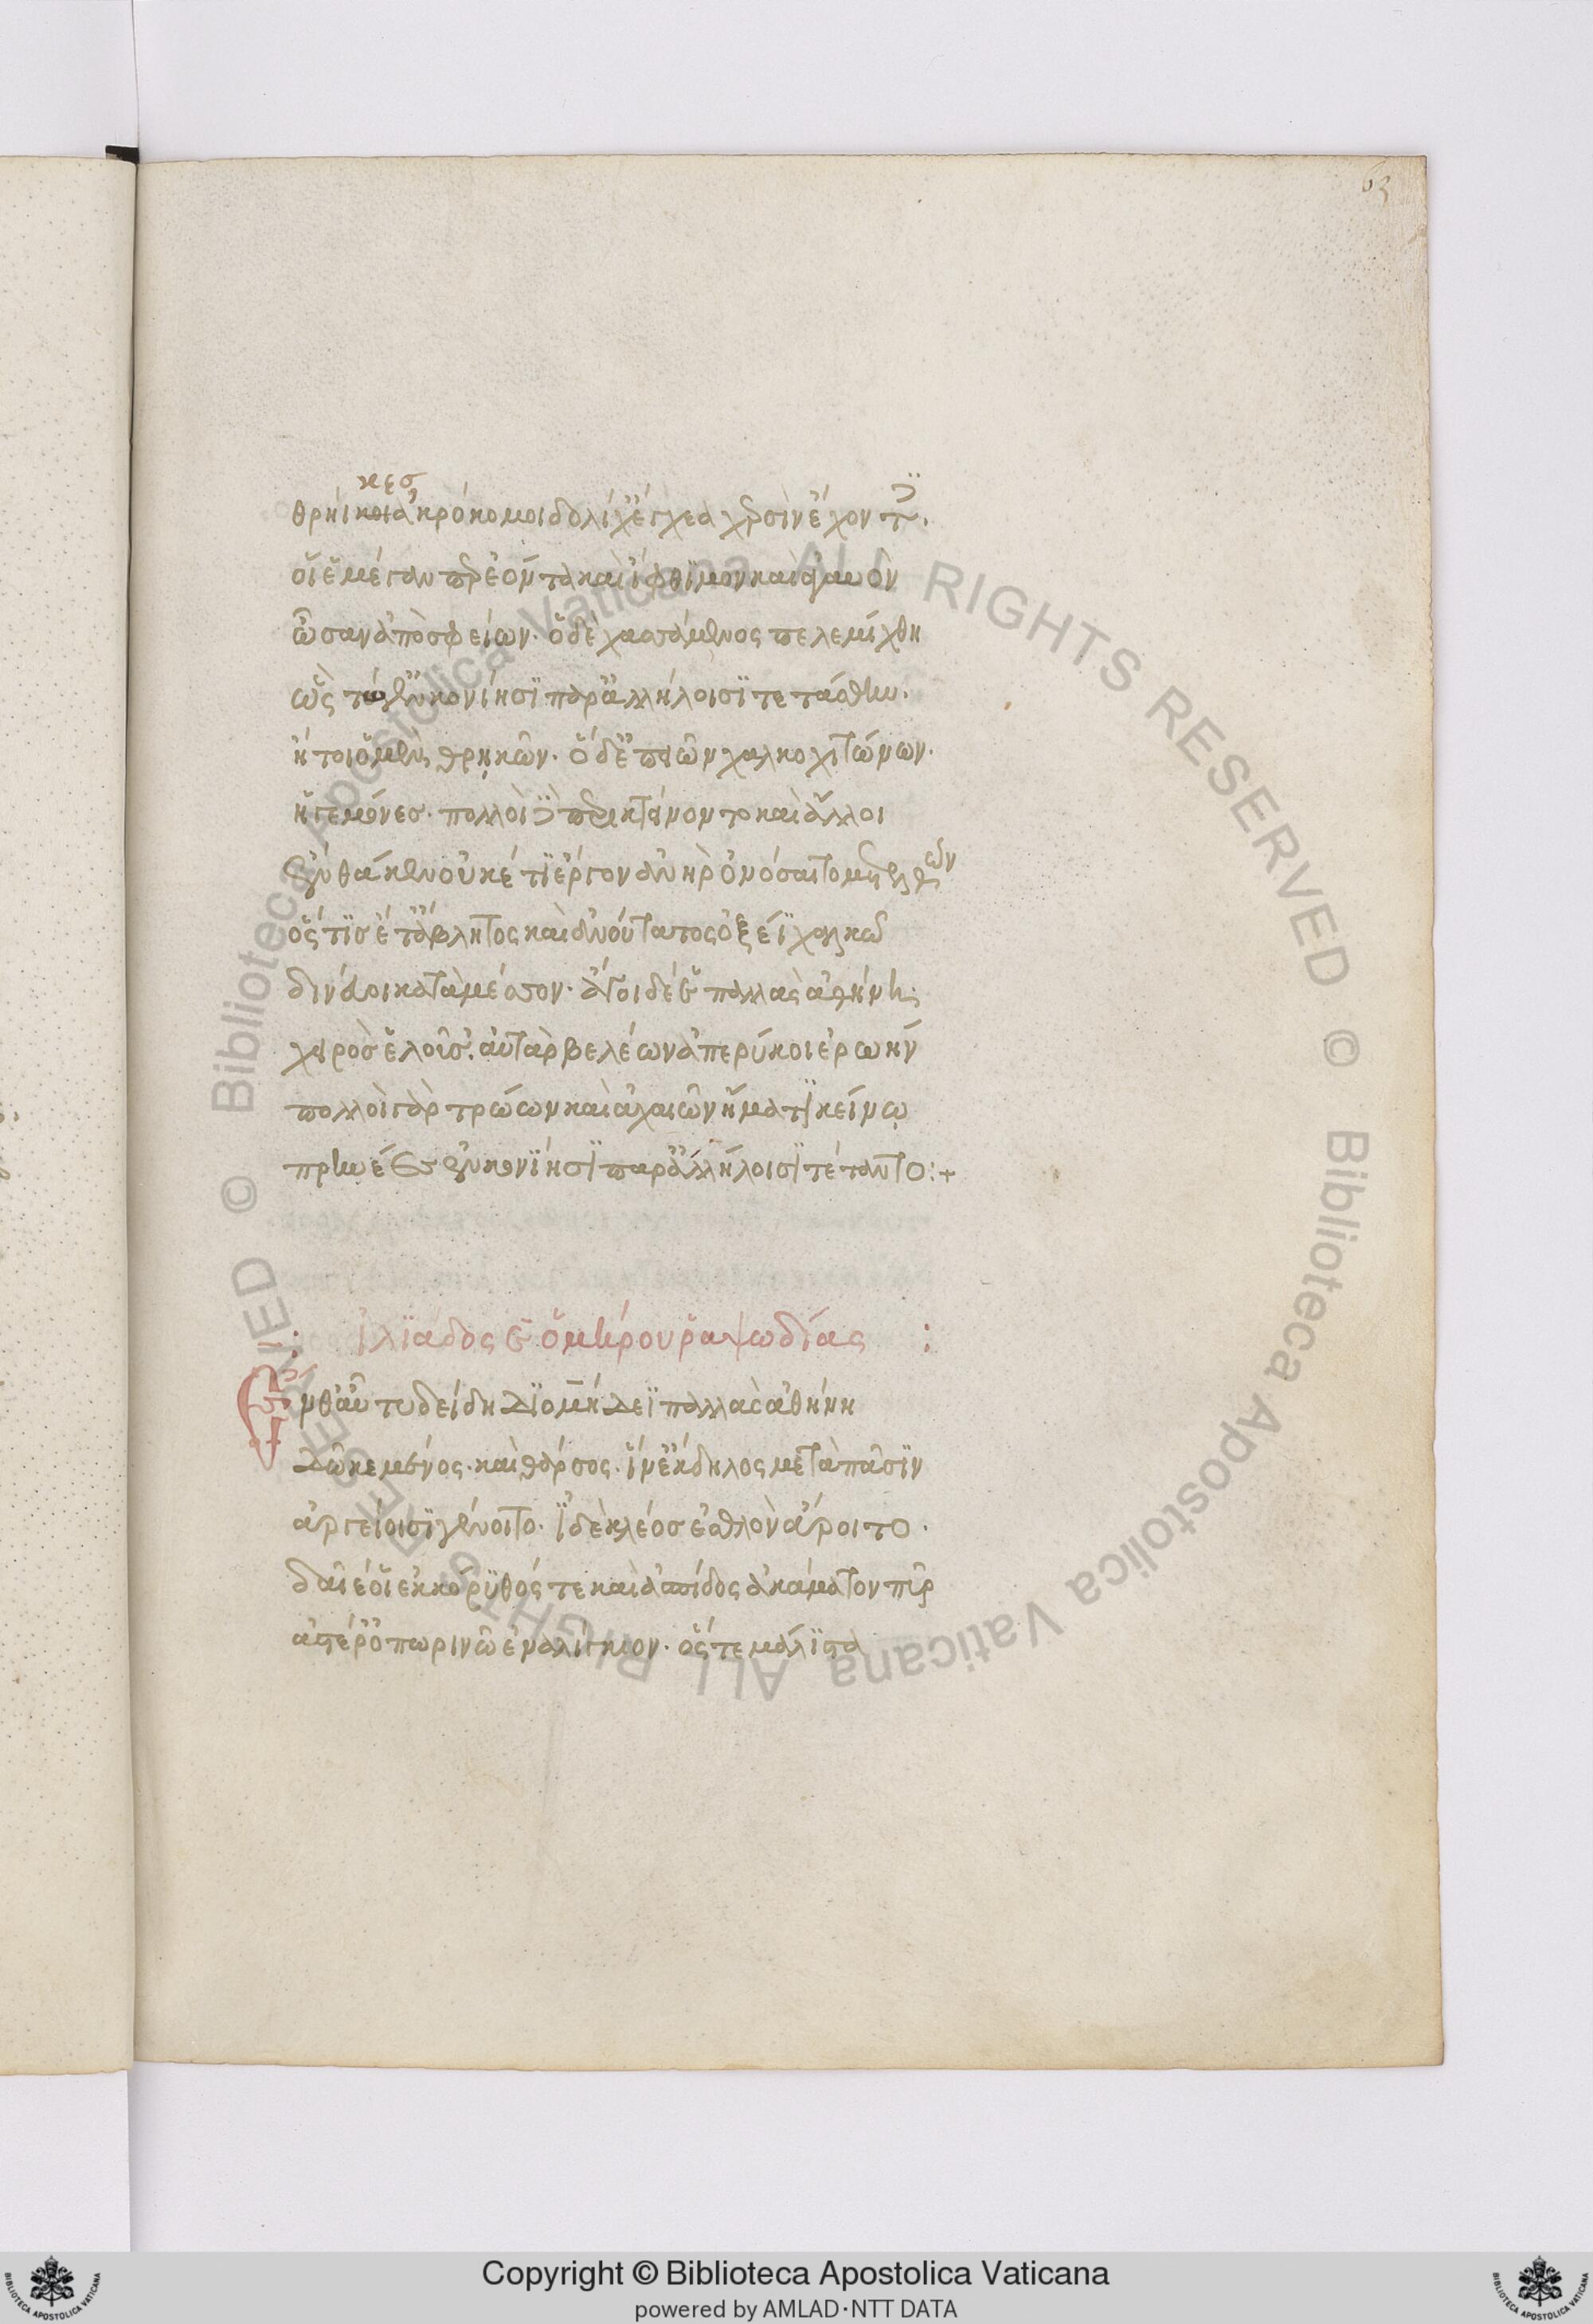 63
κες
θρήϊκοι ἀκρόκομοι δολίχ' ἔγχεα χερσὶν ἔχοντες.
οἵ ἑ μέγαν περ ἐόντα καὶ ἴφθιμον καὶ ἀγαυὸν
ὦσαν ἀπὸ σφείων· ὁ δὲ χασσάμενος πελεμίχθη
ὣς τώ γ' ἐν κονίησϊ παρ' ἀλλήλοισϊ τετάσθην.
ἤτοι ὁ μὲν θρηκῶν· ὁ δ' ἐπειῶν χαλκοχιτώνων·
ἡγεμόνες· πολλοὶ δὲ περικτείνοντο καὶ ἄλλοι
ἔνθά κεν οὐκέτϊ ἔργον ἀνὴρ ὀνόσαιτο μετελθών
ὅς τϊς ἔτ' ἄβλητος καὶ ἀνούτατος ὀξέϊ χαλκῶ
δινεύοι κατὰ μέσσον· ἄγοι δέ ἑ παλλὰς ἀθήνη·
χειρὸς ἑλοῖσ'. αὐτὰρ βελέων ἀπερύκοι ἐρωήν
πολλοὶ γὰρ τρώων καὶ ἀχαιῶν ἤματϊ κείνῳ
πρηνέες ἐν κονΐησϊ παρ' ἀλλήλοισϊ τέταντο:+
ἰλϊάδος ε ὁμήρου ῥαψωδίας :
Ἔνθ' αὖ τυδείδη Δϊομήδεϊ παλλὰς ἀθήνη
Δῶκε μένος· καὶ θάρσος· ἵν' ἔκδηλος μετὰ πᾶσϊν
ἀργείοισϊ γένοιτο· ἰδὲ κλέος ἐσθλὸν ἄροιτο·
δαῖέ οἱ ἐκ κόρϋθός τε καὶ ἀσπίδος ἀκάματον πῦρ
ἀστέρ' ὀπωρινῶ ἐναλίγκιον· ὅς τε μάλϊστα
Copyright © Biblioteca Apostolica Vaticana
powered by AMLAD·NTT DATA
© Biblioteca Apostolica Vaticana ALL RIGHTS RESERVED © Biblioteca Apostolica Vaticana ALL RIGHTS RESERVED
BIBLIOTECA APOSTOLICA VATICANA
BIBLIOTECA APOSTOLICA VATICANA